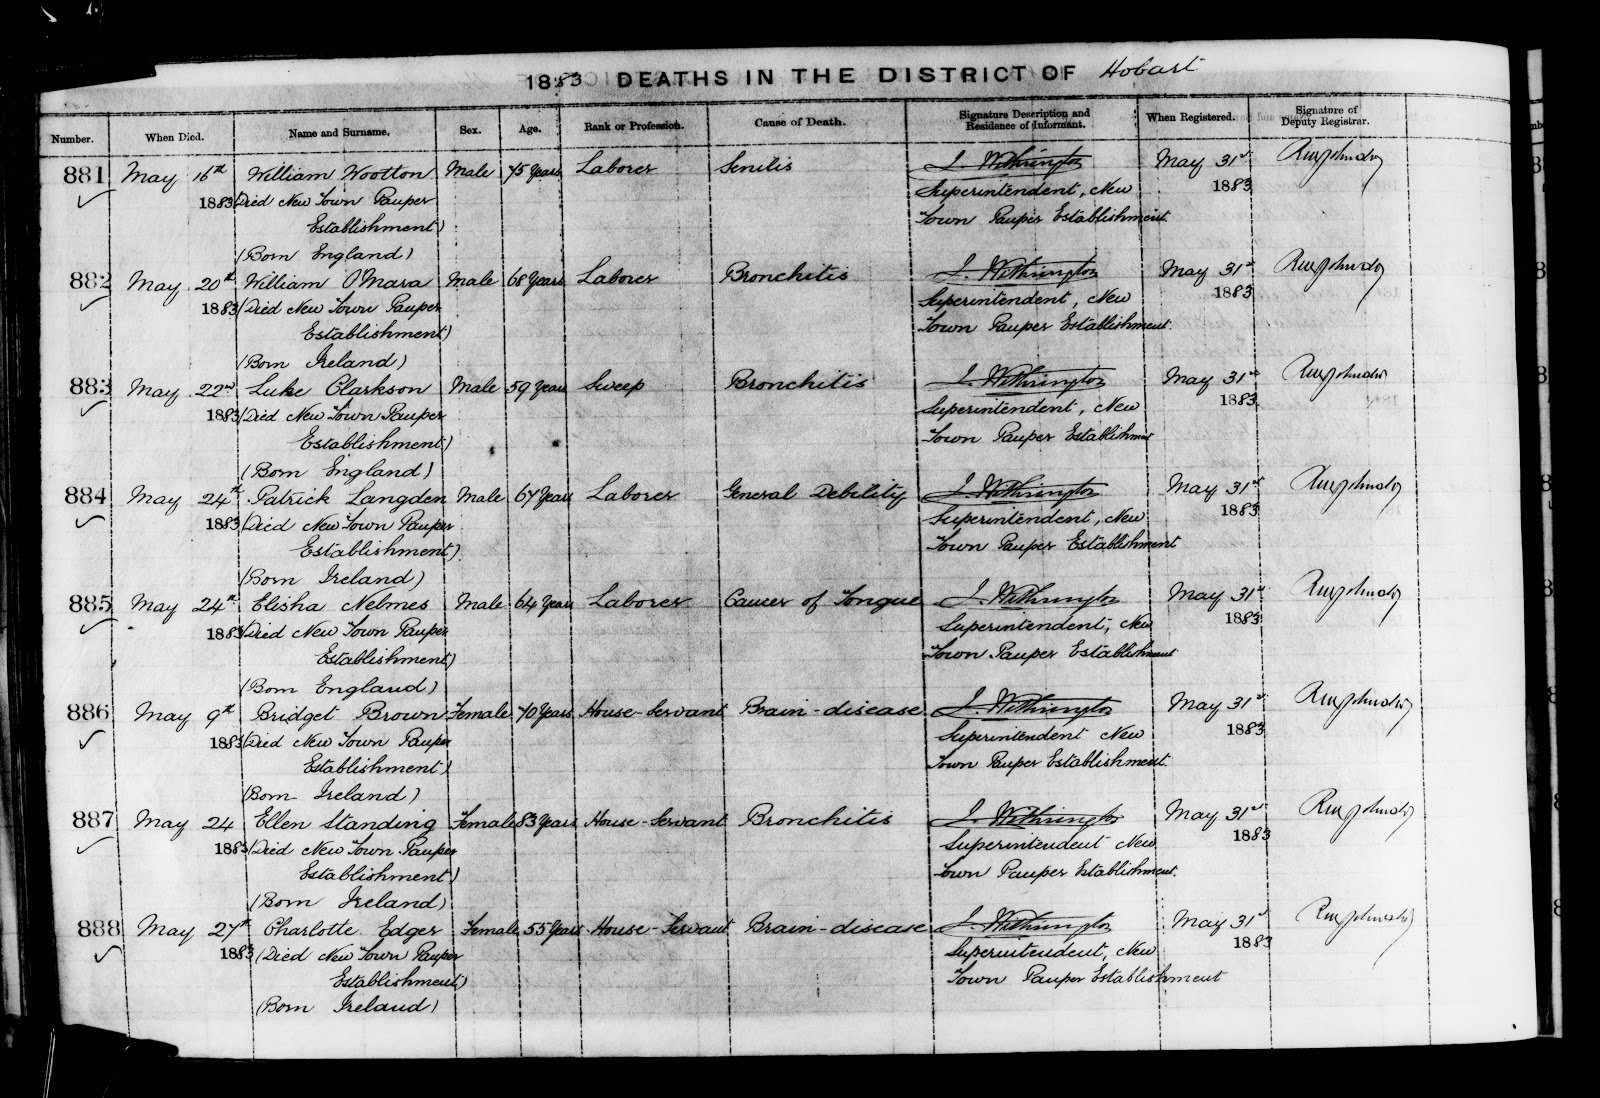 1883 DEATHS IN THE DISTRICT OF Hobart
Number. When Died. Name and Surname. Sex. Age. Rank or Profession. Cause of Death. Signature Description and Residence of Informant. When Registered. Signature of Deputy Registrar.
881 May 16th William Wootton Male 75 Years Laborer Senilis J. Withrington May 31st
1883 (Died New Town Pauper Superintendent, New 1883
Establishment) Town Pauper Establishment.
(Born England)
882 May 20th William O'Mara Male 68 Years Laborer Bronchitis J. Withrington May 31st
1883 (Died New Town Pauper Superintendent, New 1883
Establishment) Town Pauper Establishment.
(Born Ireland)
883 May 22nd Luke Clarkson Male 59 Years Sweep Bronchitis J. Withrington May 31st
1883 (Died New Town Pauper Superintendent, New 1883
Establishment) Town Pauper Establishment
(Born England)
884 May 24th Patrick Langden Male 67 Years Laborer General Debility J. Withrington May 31st
1883 (Died New Town Pauper Superintendent, New 1883
Establishment) Town Pauper Establishment
(Born Ireland)
885 May 24th Elisha Nelmes Male 64 Years Laborer Cancer of Tongue J. Withrington May 31st
1883 (Died New Town Pauper Superintendent, New 1883
Establishment) Town Pauper Establishment
(Born England)
886 May 9th Bridget Brown Female 70 Years House-Servant Brain-disease J. Withrington May 31st
1883 (Died New Town Pauper Superintendent New 1883
Establishment) Town Pauper Establishment.
(Born Ireland)
887 May 24 Ellen Standing Female 83 Years House-Servant Bronchitis J. Withrington May 31st
1883 (Died New Town Pauper Superintendent New 1883
Establishment) Town Pauper Establishment.
(Born Ireland)
888 May 27th Charlotte Edger Female 55 Years House-Servant Brain-disease J. Withrington May 31st
1883 (Died New Town Pauper Superintendent, New 1883
Establishment) Town Pauper Establishment
(Born Ireland)